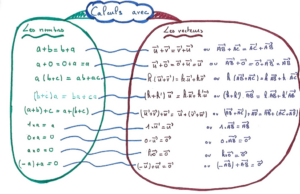 Calculs avec
Les nombres
a+b=b+a
a+0=0+a=a
a(b+c)=ab+ac
(b+c)a=ba+ca
(a+b)+c=a+(b+c)
1×a=a
0×a=0
a×0=0
(-a)+a=0
Les vecteurs
u⃗+v⃗=v⃗+u⃗ ou AB⃗+AC⃗=AC⃗+AB⃗
u⃗+0⃗=0⃗+u⃗=u⃗ ou AB⃗+0⃗=0⃗+AB⃗=AB⃗
k(u⃗+v⃗)=ku⃗+kv⃗ ou k(AB⃗+AC⃗)=kAB⃗+kAC⃗
(k+k')u⃗=ku⃗+k'u⃗ ou (k+k')AB⃗=kAB⃗+k'AB⃗
1·u⃗=u⃗ ou 1·AB⃗=AB⃗
0·u⃗=0⃗ ou 0·AB⃗=0⃗
k·0⃗=0⃗ ou k·0⃗=0⃗
(-u⃗)+u⃗=0⃗ ou (-AB⃗)+AB⃗=0⃗